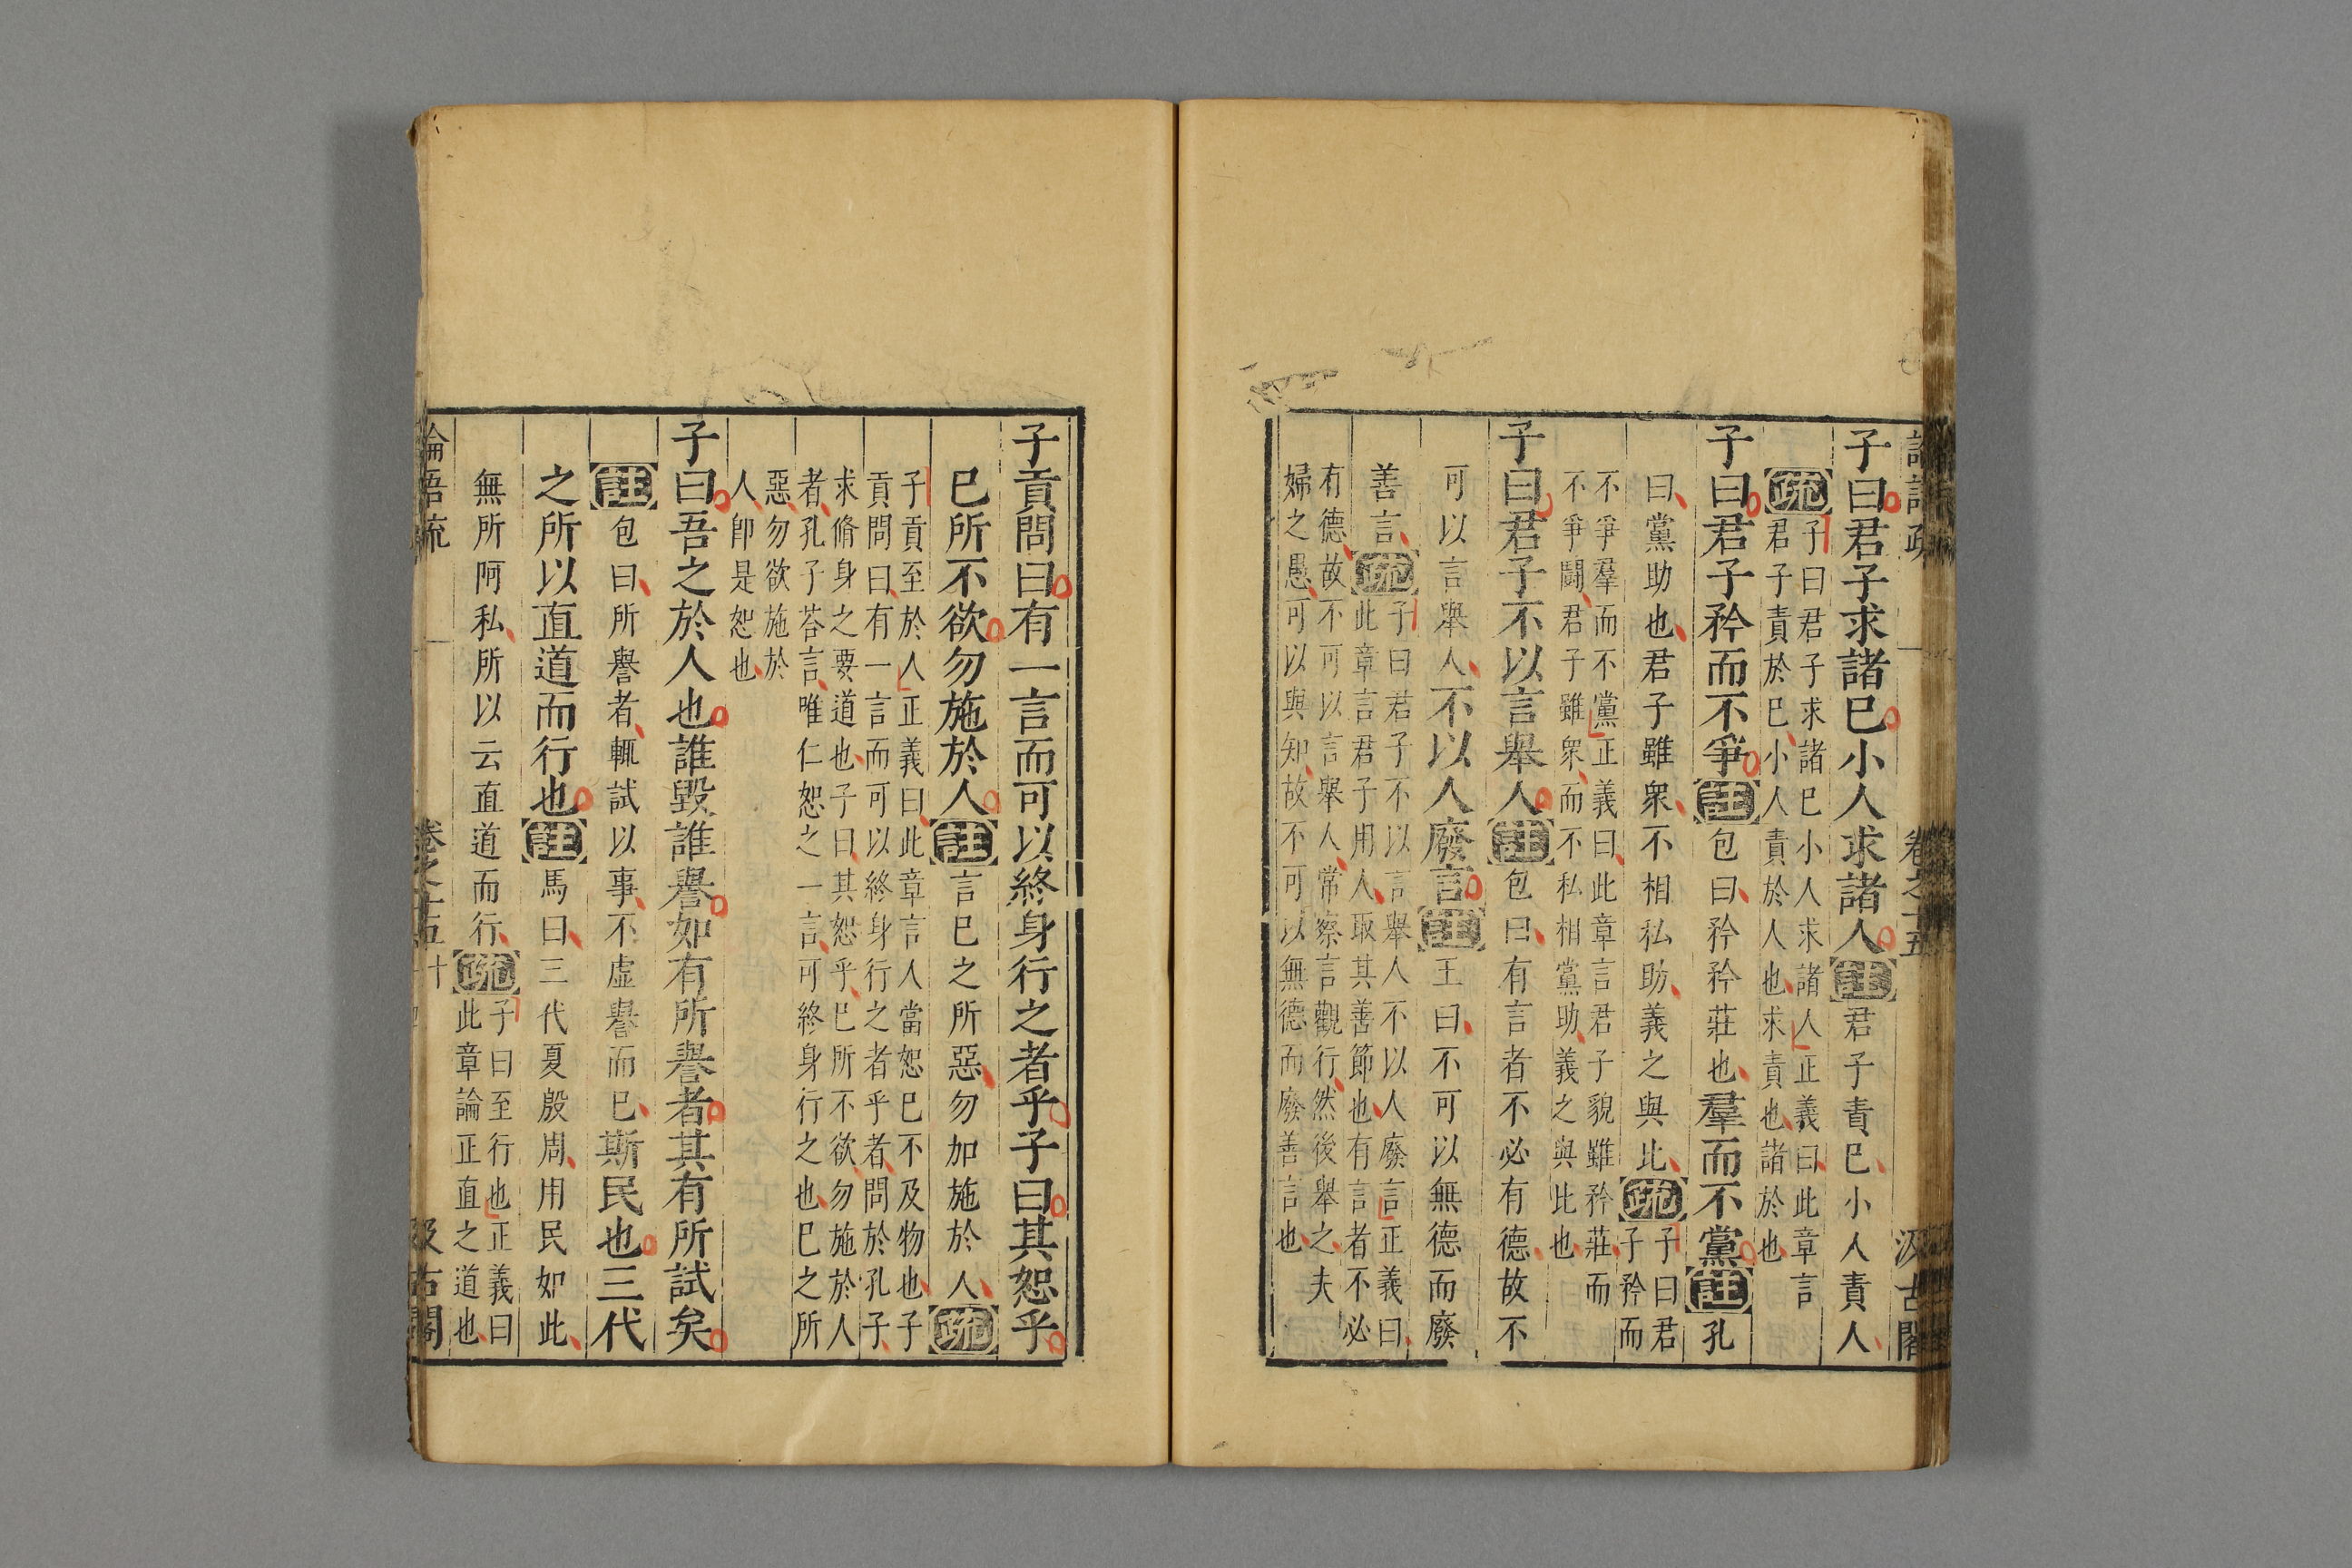 子曰君子求諸巳小人求諸人註君子責巳小人責人
疏子曰君子求諸巳小人求諸人正義曰此章言
君子責於巳小人責於人也求責也諸於也
子曰君子矜而不爭註包曰矜矜莊也羣而不黨註孔
曰黨助也君子雖衆不相私助義之與比疏子曰君
子矜而
不爭羣而不黨正義曰此章言君子貌雖矜莊而
不爭鬪君子雖衆而不私相黨助義之與比也
子曰君子不以言舉人註包曰有言者不必有德故不
可以言舉人不以人廢言註王曰不可以無德而廢
善言疏子曰君子不以言舉人不以人廢言正義曰
此章言君子用人取其善節也有言者不必
有德故不可以言舉人常察言觀行然後舉之夫
婦之愚可以與知故不可以無德而廢善言也
汲古閣
子貢問曰有一言而可以終身行之者乎子曰其恕乎
巳所不欲勿施於人註言巳之所惡勿加施於人疏
子貢至於人正義曰此章言人當恕巳不及物也子
貢問曰有一言而可以終身行之者乎者問於孔子
求脩身之要道也子曰其恕乎巳所不欲勿施於人
者孔子荅言唯仁恕之一言可終身行之也巳之所
惡勿欲施於
人卽是恕也
子曰吾之於人也誰毀誰譽如有所譽者其有所試矣
註包曰所譽者輒試以事不虛譽而巳斯民也三代
之所以直道而行也註馬曰三代夏殷周用民如此
無所阿私所以云直道而行疏子曰至行也正義曰
此章論正直之道也
論語疏 卷之十五 十 汲古閣